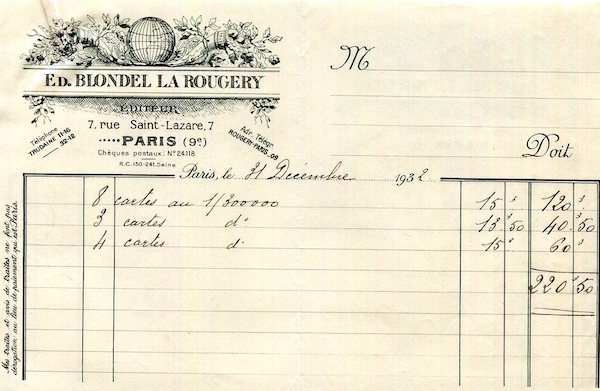 ED. BLONDEL LA ROUGERY
ÉDITEUR
7, rue Saint-Lazare, 7
PARIS (9e)
Chèques postaux: No 24.118
R.C. 150-241. Seine
Téléphone
TRUDAINE 11-16
32-12
Adr. Télégr.
ROUGERY-PARIS-09
M
Doit
Paris, le 31 Décembre 1932
8 cartes au 1/300000 15 120
3 cartes do 13 50 40 50
4 cartes do 15 60
220 50
Mes traites et avis de traites ne font pas
dérogation au lieu de paiement qui est Paris.